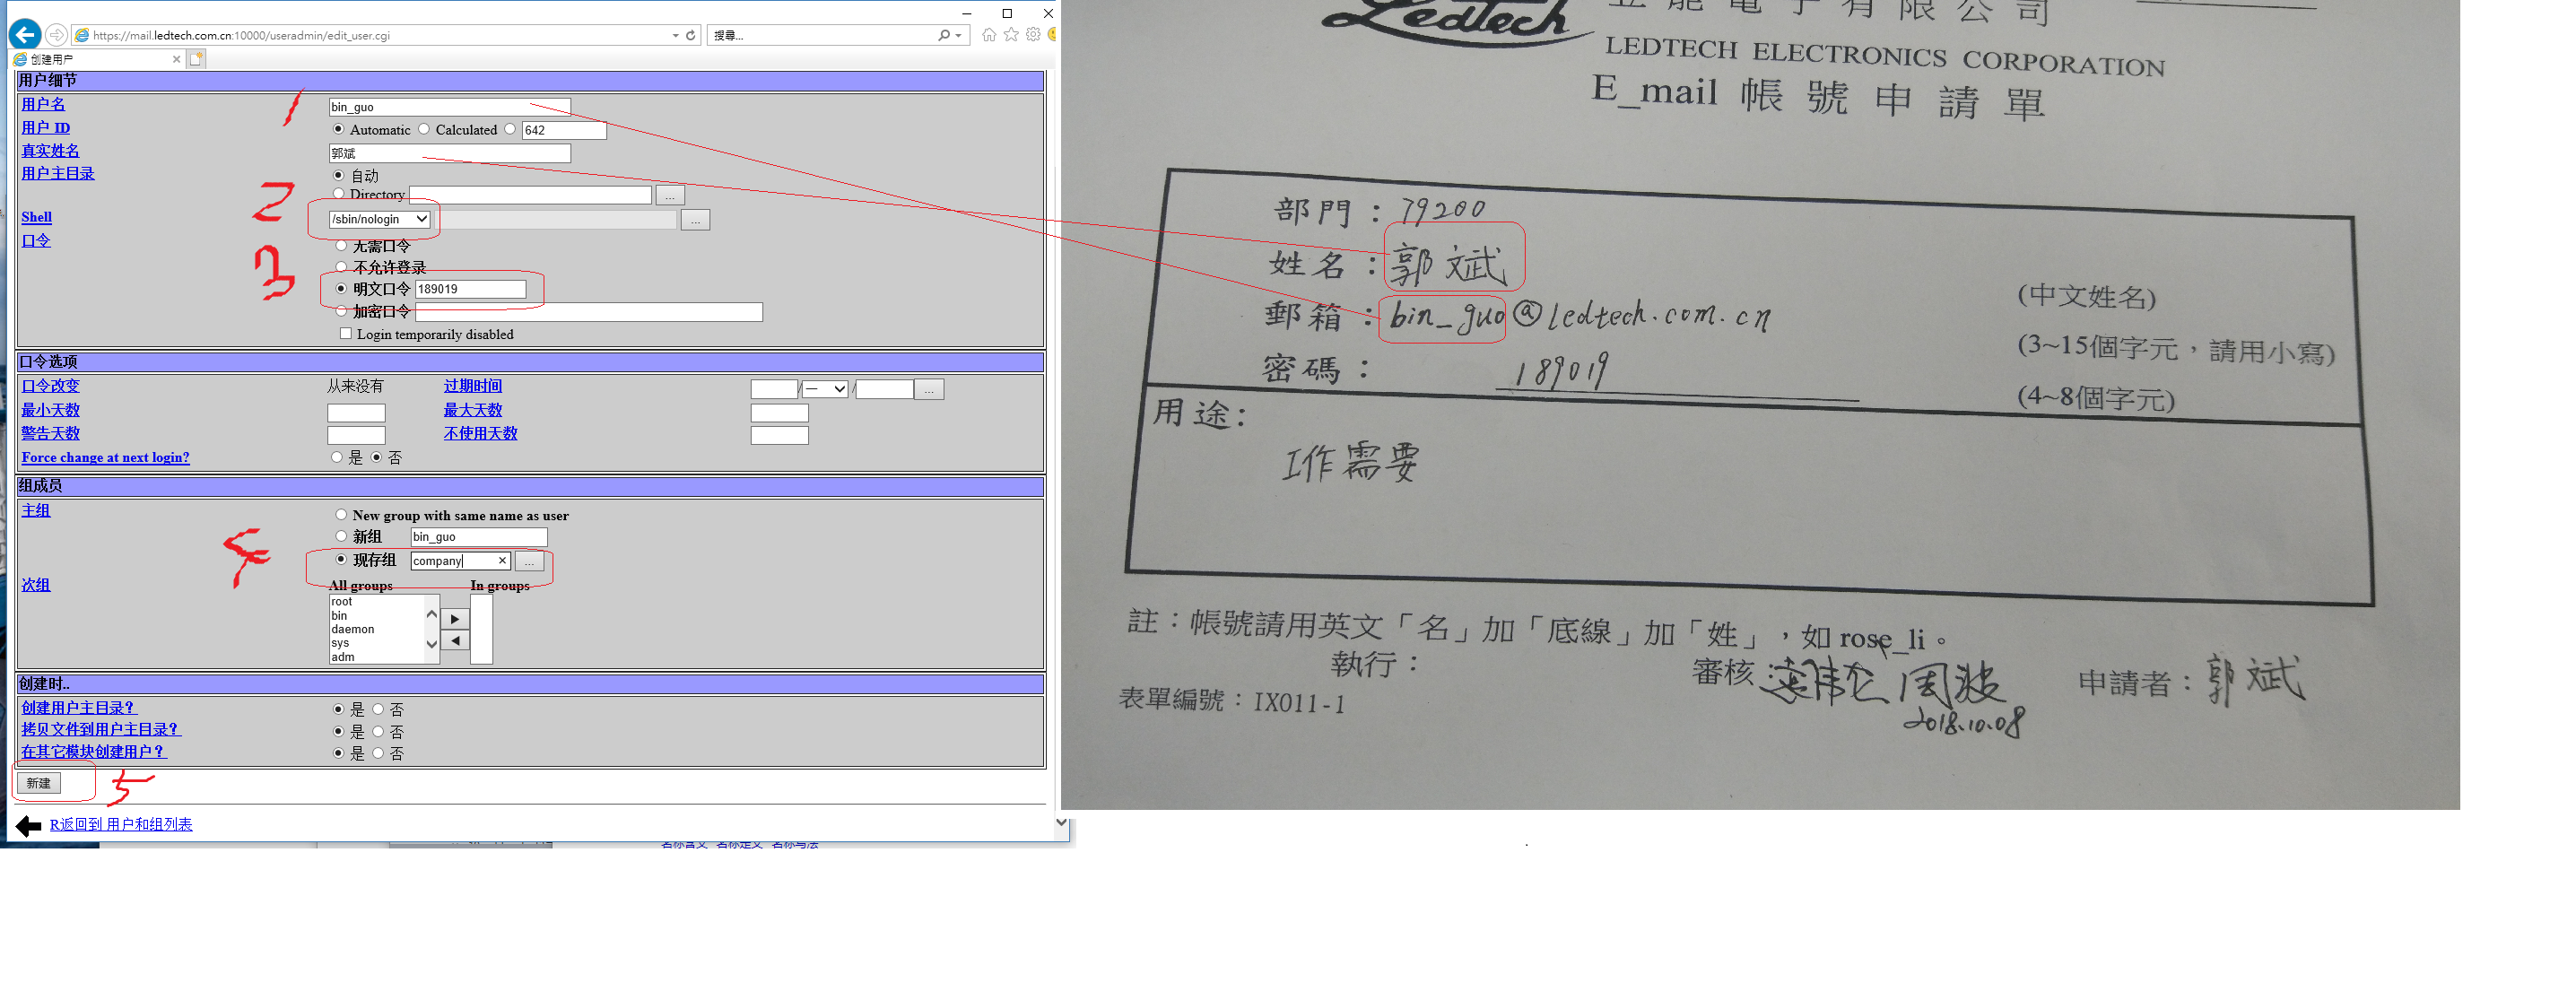 https://mail.ledtech.com.cn:10000/useradmin/edit_user.cgi
搜尋...
创建用户
用户细节
用户名 bin_guo
1
用户 ID Automatic Calculated 642
真实姓名 郭斌
用户主目录 自动
Directory ...
2
Shell /sbin/nologin ...
口令 无需口令
3
不允许登录
明文口令 189019
加密口令
Login temporarily disabled
口令选项
口令改变 从来没有 过期时间 / — / ...
最小天数 最大天数
警告天数 不使用天数
Force change at next login? 是 否
组成员
主组 New group with same name as user
新组 bin_guo
4
现存组 company ...
次组 All groups In groups
root
bin
daemon
sys
adm
创建时..
创建用户主目录？ 是 否
拷贝文件到用户主目录？ 是 否
在其它模块创建用户？ 是 否
新建
5
R返回到 用户和组列表
Ledtech
電子有限公司
LEDTECH ELECTRONICS CORPORATION
E_mail 帳號申請單
部門：79200
姓名：郭斌 (中文姓名)
郵箱：bin_guo@ledtech.com.cn (3~15個字元，請用小寫)
密碼：189019 (4~8個字元)
用途:
工作需要
註：帳號請用英文「名」加「底線」加「姓」，如 rose_li。
執行： 審核： 周波 申請者：郭斌
2018.10.08
表單編號：IX011-1